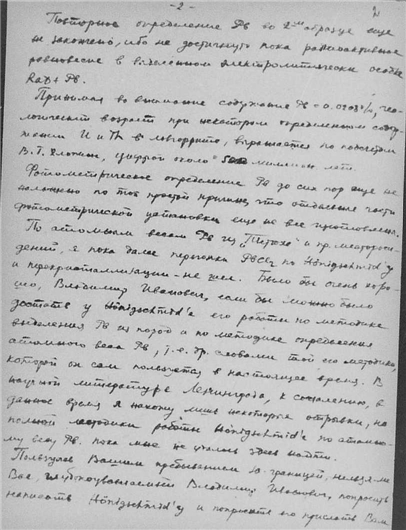 - 2 -
Повторное определение Pb во 2ом образце еще
не закончено, ибо не достигнуто пока радиоактивное
равновесие в выделенном электролитически осадке
RaD + Pb.
Принимая во внимание содержание Pb = 0.0208%, гео-
логический возраст при некотором определенном содер-
жании U и Th в ловчоррите, выражается по подсчетам
цифрой около миллион лет.
Фотометрическое определение Pb до сих пор еще не
по той простой причине, что отдельные части
фотометрической установки еще не все изготовлены.
По атомным весам Pb из и пр. месторож-
дений, я пока далее перегонки PbCl2 по Hönigschmid'у
и перекристаллизации - не шел. Было бы очень хоро-
шо, Владимир Иванович, если бы можно было
достать у Hönigschmid'а его работы по методике
выделения Pb из пород и по методике определения
атомного веса Pb, т.е. др. словами той его методике,
которой он сам пользуется в настоящее время. В
научной литературе Ленинграда, к сожалению, в
данное время я нахожу лишь некоторые отрывки, но
полной методики работы Hönigschmid'а по атомно-
му весу Pb, пока мне не удалось здесь найти.
Пользуясь Вашим пребыванием за границей, нельзя ли
Вас, глубокоуважаемый Владимир Иванович, попросить
написать Hönigschmid'у и попросить его прислать Вам